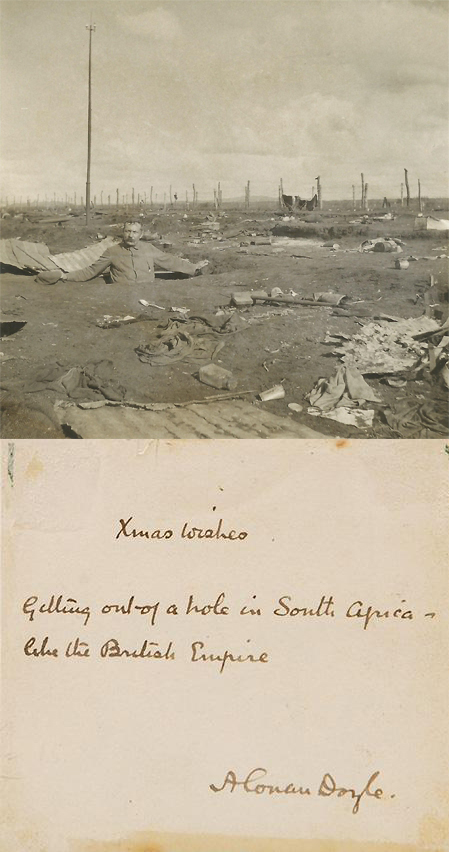 Xmas Wishes
Getting out of a hole in South Africa -
like the British Empire
A Conan Doyle.